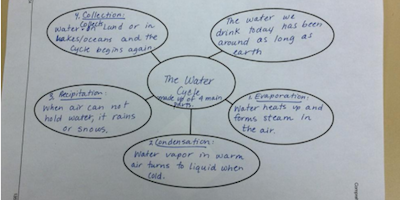 4. Collection:
Collects
Water on land or in
lakes/oceans and the
cycle begins again
The water we
drink today has been
around as long as
earth
The Water
Cycle
made up of 4 main
parts.
3. Recipitation:
When air can not
hold water, it rains
or snows.
1. Evaporation:
Water heats up and
forms steam in
the air.
2. Condensation:
Water vapor in warm
air turns to liquid when
cold.